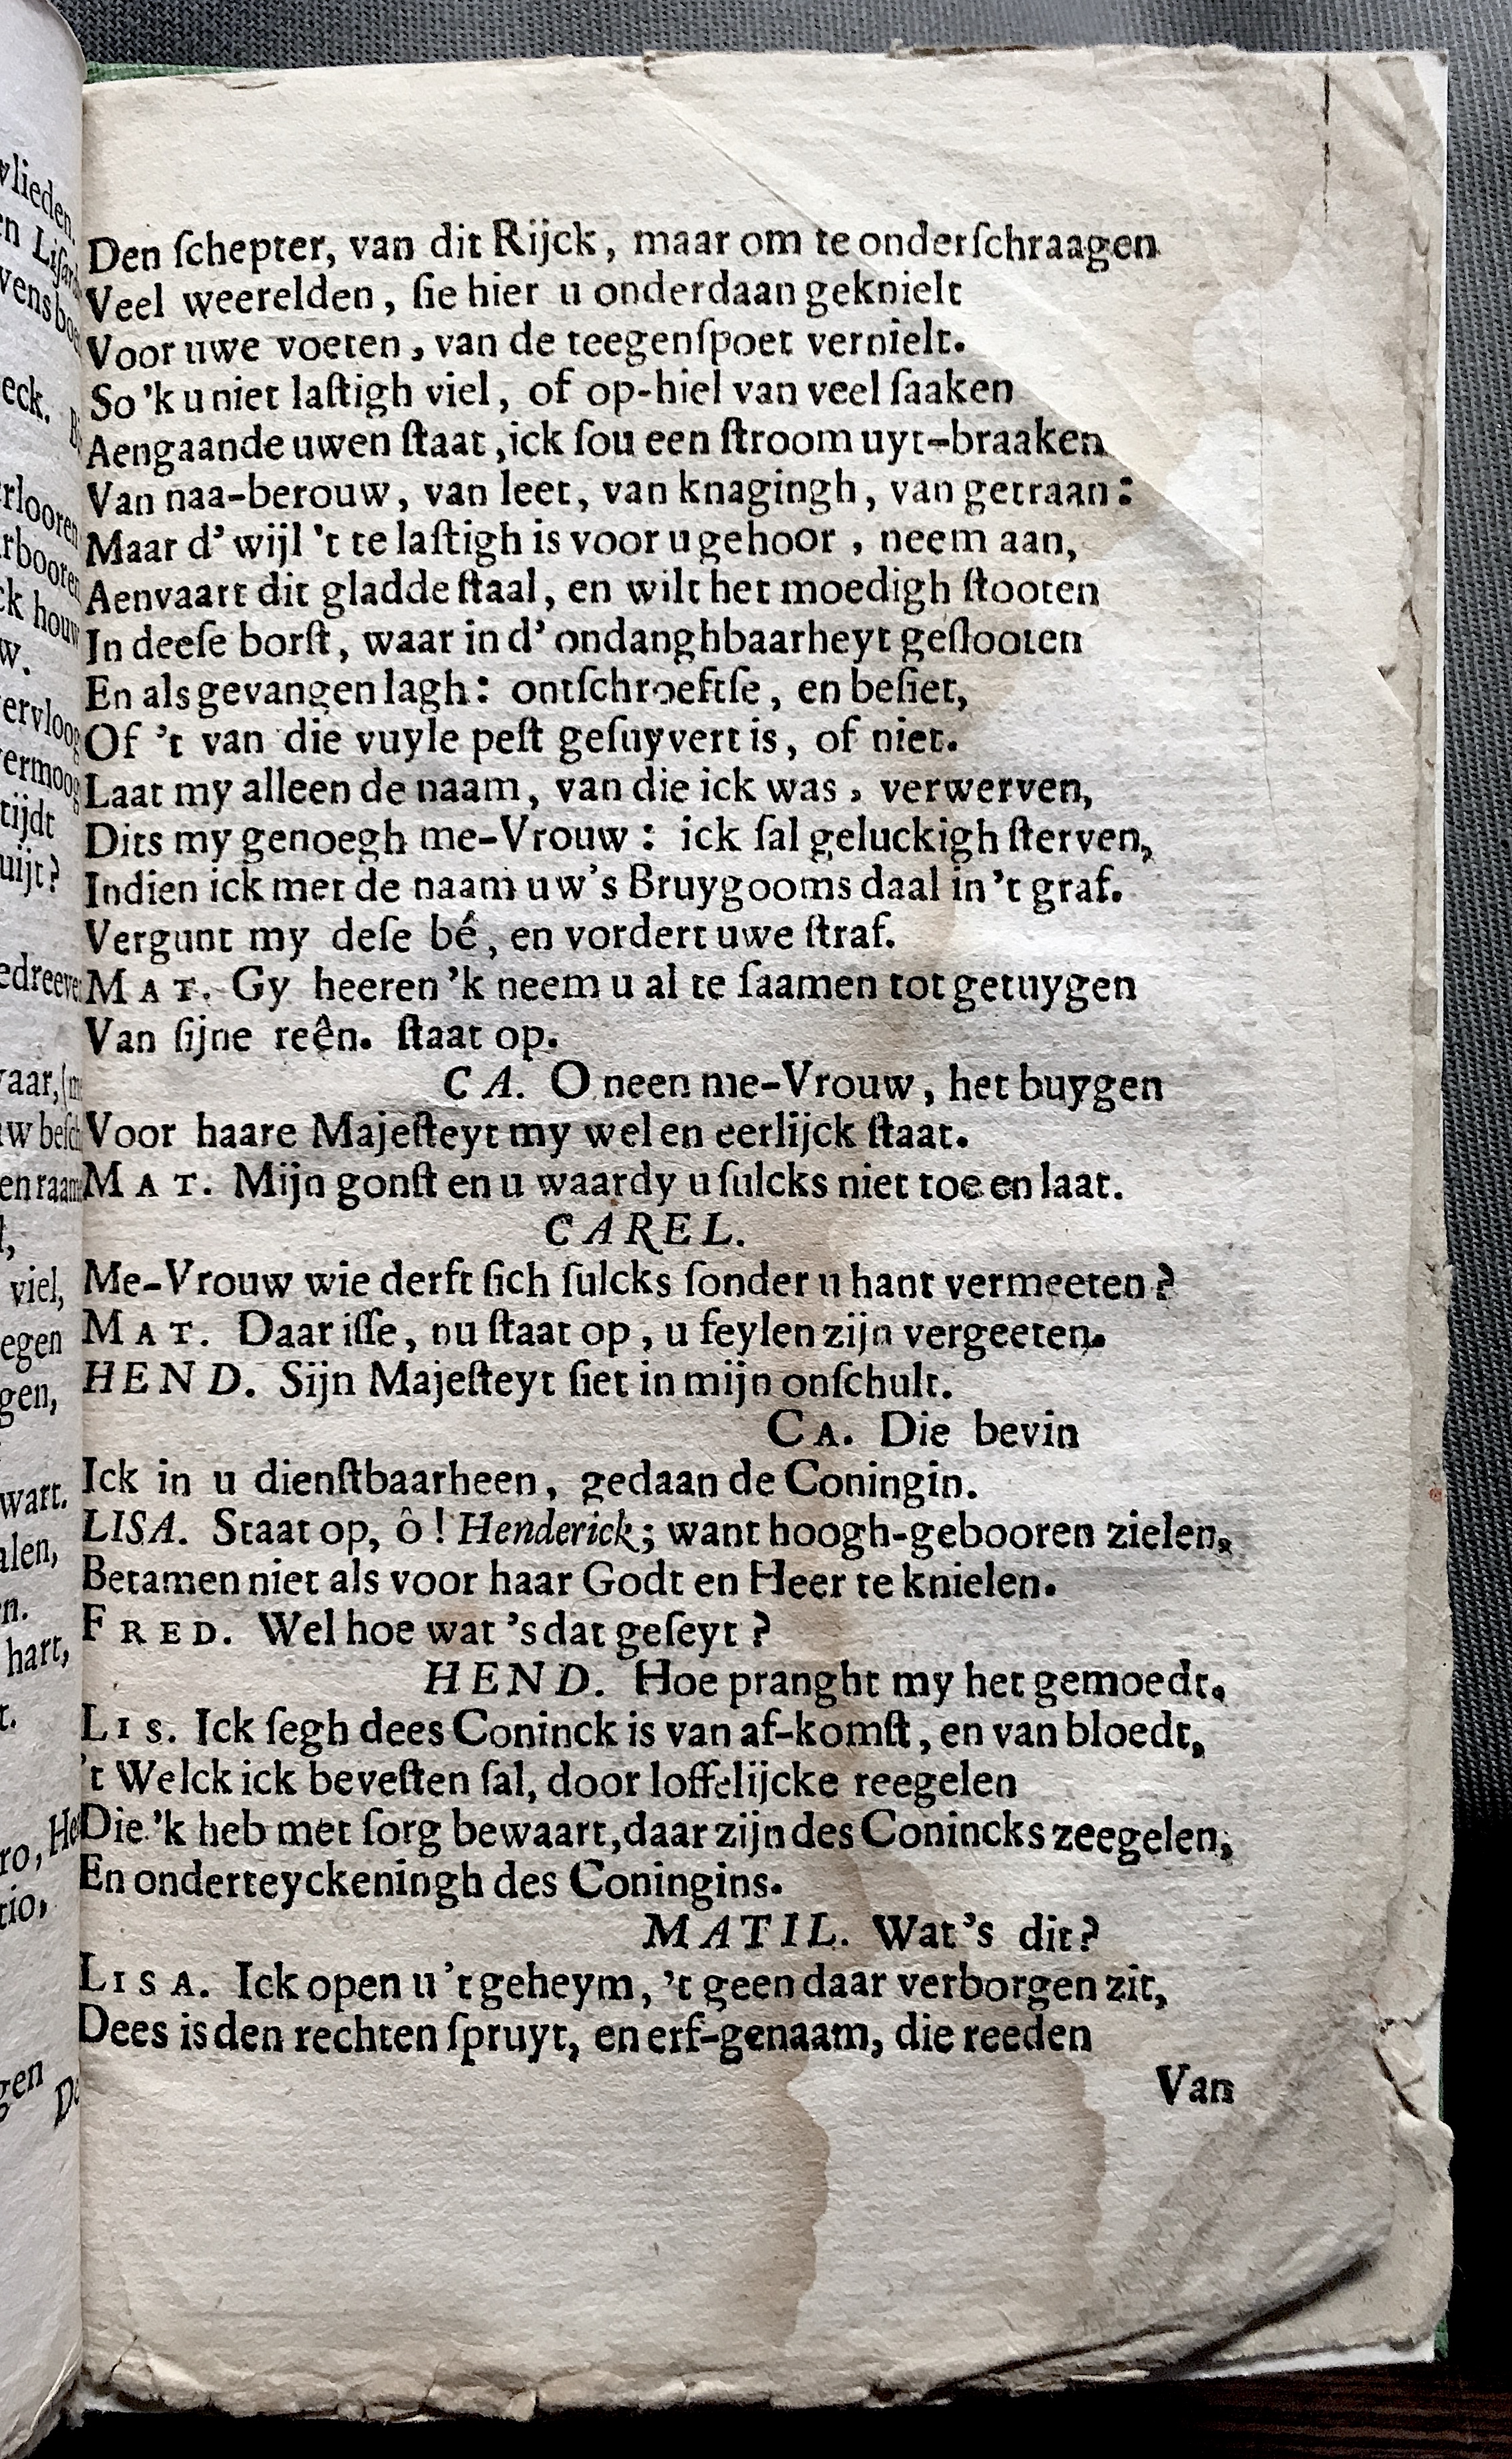 Den ſchepter, van dit Rijck, maar om te onderſchraagen
Veel weerelden, ſie hier u onderdaan geknielt
Voor uwe voeten, van de teegenſpoet vernielt.
So 'k u niet laſtigh viel, of op-hiel van veel ſaaken
Aengaande uwen ſtaat, ick ſou een ſtroom uyt-braaken
Van naa-berouw, van leet, van knagingh, van getraan:
Maar d' wijl 't te laſtigh is voor u gehoor, neem aan,
Aenvaart dit gladde ſtaal, en wilt het moedigh ſtooten
In deeſe borſt, waar in d' ondanghbaarheyt geſlooten
En als gevangen lagh: ontſchroeftſe, en beſiet,
Of 't van die vuyle peſt geſuyvert is, of niet.
Laat my alleen de naam, van die ick was, verwerven,
Dits my genoegh me-Vrouw: ick ſal geluckigh ſterven,
Indien ick met de naam uw's Bruygooms daal in 't graf.
Vergunt my deſe bé, en vordert uwe ſtraf.
MAT. Gy heeren 'k neem u al te ſaamen tot getuygen
Van ſijne reên. ſtaat op.
CA. O neen me-Vrouw, het buygen
Voor haare Majeſteyt my wel en eerlijck ſtaat.
MAT. Mijn gonſt en u waardy u ſulcks niet toe en laat.
CAREL.
Me-Vrouw wie derft ſich ſulcks ſonder u hant vermeeten?
MAT. Daar iſſe, nu ſtaat op, u feylen zijn vergeeten.
HEND. Sijn Majeſteyt ſiet in mijn onſchult.
CA. Die bevin
Ick in u dienſtbaarheen, gedaan de Coningin.
LISA. Staat op, ô! Henderick; want hoogh-gebooren zielen,
Betamen niet als voor haar Godt en Heer te knielen.
FRED. Wel hoe wat 's dat geſeyt?
HEND. Hoe pranght my het gemoedt.
LIS. Ick ſegh dees Coninck is van af-komſt, en van bloedt,
't Welck ick beveſten ſal, door loffelijcke reegelen
Die 'k heb met ſorg bewaart, daar zijn des Conincks zeegelen,
En onderteyckeningh des Coningins.
MATIL. Wat 's dit?
LISA. Ick open u 't geheym, 't geen daar verborgen zit,
Dees is den rechten ſpruyt, en erf-genaam, die reeden
Van